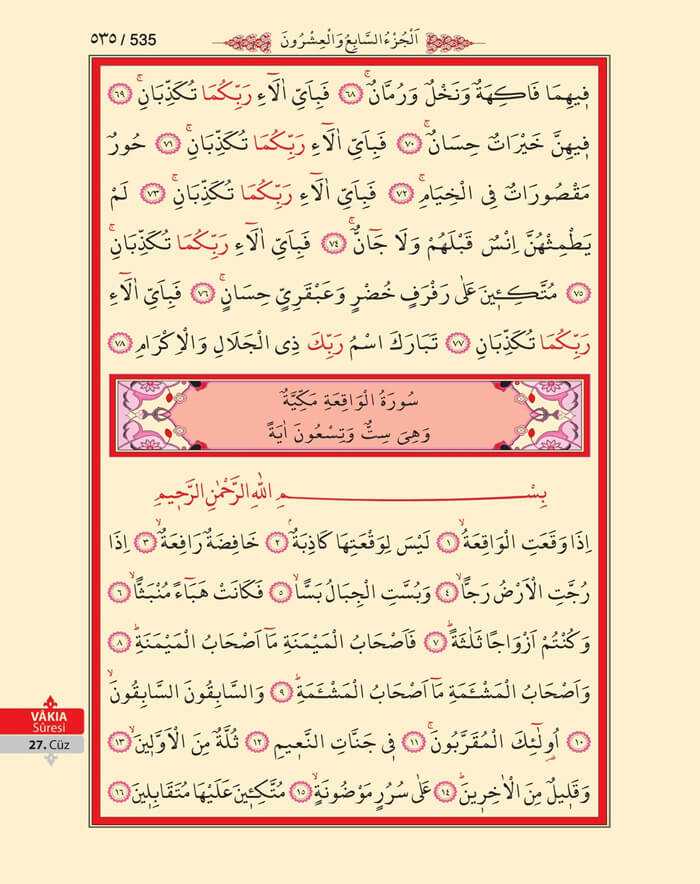 ٥٣٥ / 535
اَلْجُزْءُ السَّابِعُ وَالْعِشْرُونَ
ف۪يهِمَا فَاكِهَةٌ وَنَخْلٌ وَرُمَّانٌۚ ﴿٦٨﴾ فَبِاَيِّ اٰلَٓاءِ رَبِّكُمَا تُكَذِّبَانِۚ ﴿٦٩﴾
ف۪يهِنَّ خَيْرَاتٌ حِسَانٌۚ ﴿٧٠﴾ فَبِاَيِّ اٰلَٓاءِ رَبِّكُمَا تُكَذِّبَانِۚ ﴿٧١﴾ حُورٌ
مَقْصُورَاتٌ فِي الْخِيَامِۚ ﴿٧٢﴾ فَبِاَيِّ اٰلَٓاءِ رَبِّكُمَا تُكَذِّبَانِۚ ﴿٧٣﴾ لَمْ
يَطْمِثْهُنَّ اِنْسٌ قَبْلَهُمْ وَلَا جَٓانٌّۚ ﴿٧٤﴾ فَبِاَيِّ اٰلَٓاءِ رَبِّكُمَا تُكَذِّبَانِۚ
﴿٧٥﴾ مُتَّكِـ۪ٔينَ عَلٰى رَفْرَفٍ خُضْرٍ وَعَبْقَرِيٍّ حِسَانٍۚ ﴿٧٦﴾ فَبِاَيِّ اٰلَٓاءِ
رَبِّكُمَا تُكَذِّبَانِ ﴿٧٧﴾ تَبَارَكَ اسْمُ رَبِّكَ ذِي الْجَلَالِ وَالْاِكْرَامِ ﴿٧٨﴾
سُورَةُ الْوَاقِعَةِ مَكِّيَّةٌ
وَهِيَ سِتٌّ وَتِسْعُونَ اٰيَةً
بِسْــــــــمِ اللّٰهِ الرَّحْمٰنِ الرَّح۪يمِ
اِذَا وَقَعَتِ الْوَاقِعَةُۙ ﴿١﴾ لَيْسَ لِوَقْعَتِهَا كَاذِبَةٌۢ ﴿٢﴾ خَافِضَةٌ رَافِعَةٌۙ ﴿٣﴾ اِذَا
رُجَّتِ الْاَرْضُ رَجًّاۙ ﴿٤﴾ وَبُسَّتِ الْجِبَالُ بَسًّاۙ ﴿٥﴾ فَكَانَتْ هَبَٓاءً مُنْبَثًّاۙ ﴿٦﴾
وَكُنْتُمْ اَزْوَاجًا ثَلٰثَةًۜ ﴿٧﴾ فَاَصْحَابُ الْمَيْمَنَةِ مَٓا اَصْحَابُ الْمَيْمَنَةِۜ ﴿٨﴾
وَاَصْحَابُ الْمَشْـَٔمَةِ مَٓا اَصْحَابُ الْمَشْـَٔمَةِۜ ﴿٩﴾ وَالسَّابِقُونَ السَّابِقُونَۙ
﴿١٠﴾ اُو۬لٰٓئِكَ الْمُقَرَّبُونَۚ ﴿١١﴾ ف۪ي جَنَّاتِ النَّع۪يمِ ﴿١٢﴾ ثُلَّةٌ مِنَ الْاَوَّل۪ينَۙ ﴿١٣﴾
وَقَل۪يلٌ مِنَ الْاٰخِر۪ينَۜ ﴿١٤﴾ عَلٰى سُرُرٍ مَوْضُونَةٍۙ ﴿١٥﴾ مُتَّكِـ۪ٔينَ عَلَيْهَا مُتَقَابِل۪ينَ ﴿١٦﴾
VÂKIA
Sûresi
27. Cüz